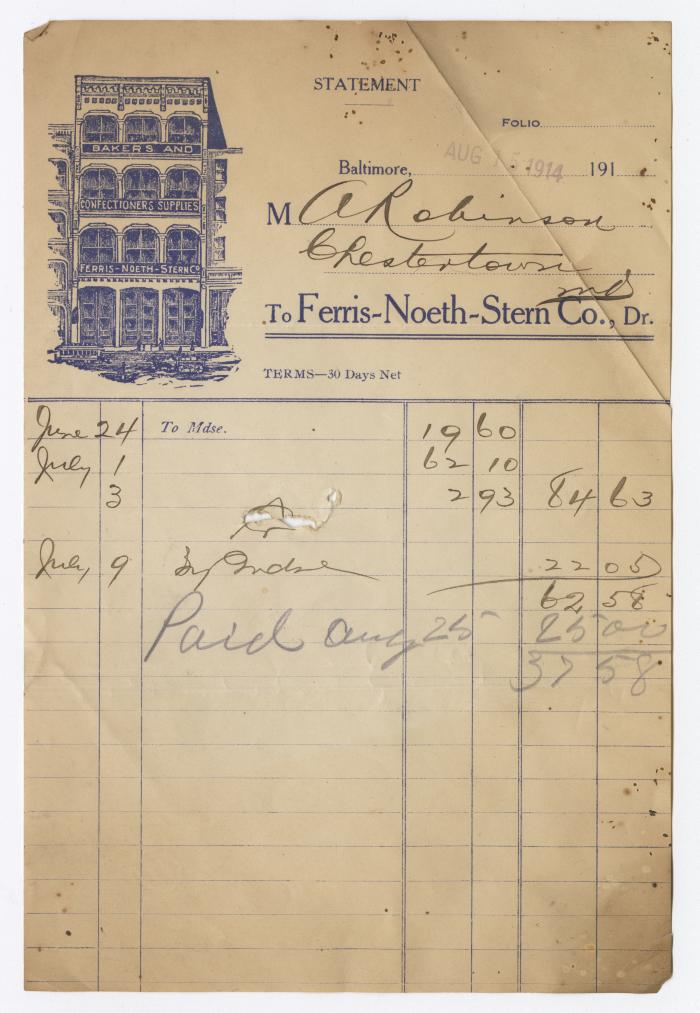 STATEMENT
FOLIO
Baltimore, AUG 15 1914 191
M A Robinson
Chestertown
Md
To Ferris-Noeth-Stern Co., Dr.
TERMS—30 Days Net
BAKERS AND
CONFECTIONERS SUPPLIES
FERRIS-NOETH-STERN CO
June 24 To Mdse. 19 60
July 1 62 10
3 2 93 84 63
Cr
July 9 By Mdse 22 05
62 58
Paid Aug 25 25 00
37 58